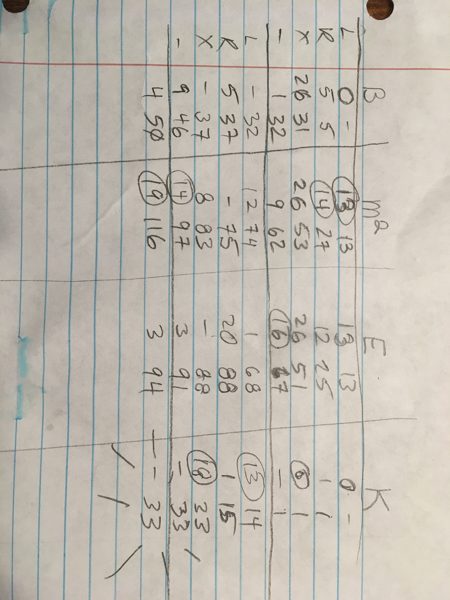 B me E K
L 0 - 13 13 13 13 0 -
R 5 5 14 27 12 25 1 1
X 26 31 26 53 26 51 6 1
- 1 32 9 62 16 67 - 1
L - 32 12 74 1 68 13 14
R 5 37 - 75 20 88 1 15
X - 37 8 83 - 88 18 33
- 9 46 14 97 3 91 - 33
4 50 19 116 3 94 - 33